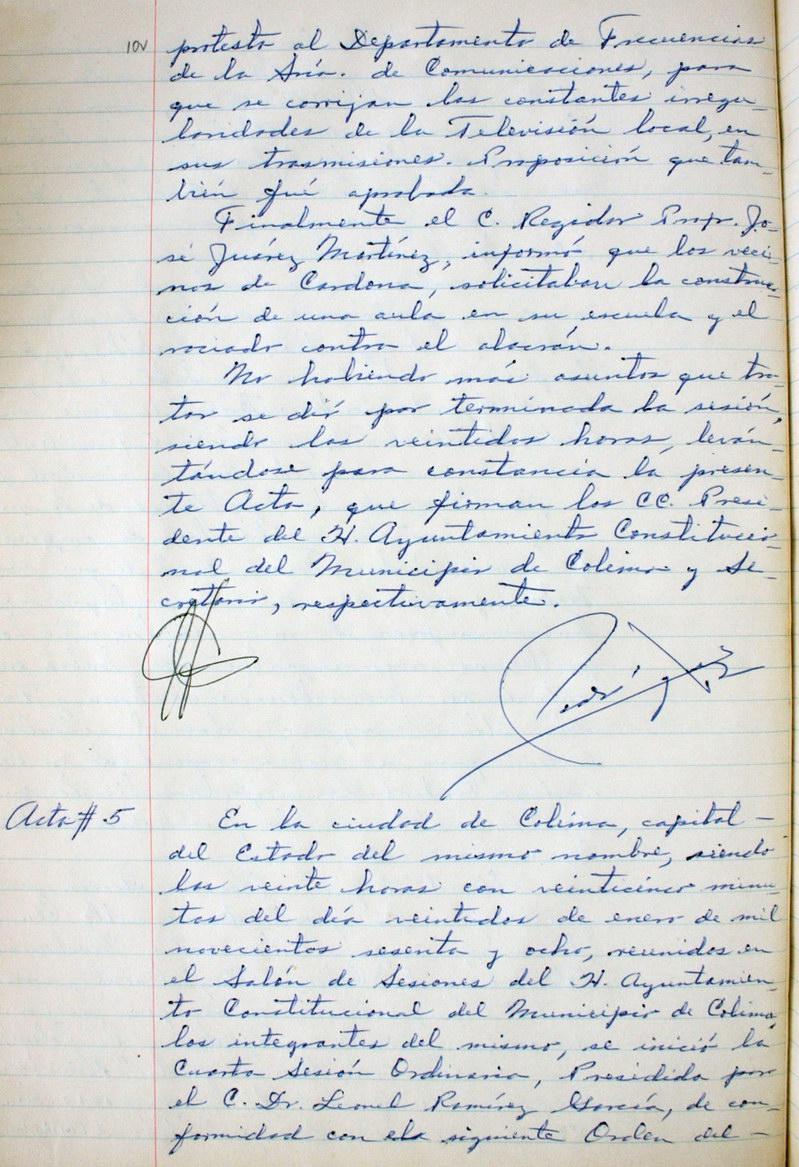 10v
protesta al Departamento de Frecuencias
de la Sría. de Comunicaciones, para
que se corrijan las constantes irregu-
laridades de la Televisión local, en
sus trasmisiones. Proposición que tam-
bién fué aprobada.
Finalmente el C. Regidor Profr. Jo-
sé Juárez Martínez, informó que los veci-
nos de Cardona, solicitaban la construc-
ción de una aula en su escuela y el
rociado contra el alacrán.
No habiendo más asuntos que tra-
tar se dió por terminada la sesión,
siendo las veintidos horas, leván-
tándose para constancia la presen-
te Acta, que firman los CC. Presi-
dente del H. Ayuntamiento Constitucio-
nal del Municipio de Colima y Se-
cretario, respectivamente.
Acta # 5
En la ciudad de Colima, capital -
del Estado del mismo nombre, siendo
las veinte horas con veinticinco minu-
tos del día veintidos de enero de mil
novecientos sesenta y ocho, reunidos en
el Salón de Sesiones del H. Ayuntamien-
to Constitucional del Municipio de Colima
los integrantes del mismo, se inició la
Cuarta Sesión Ordinaria, Presidida por
el C. Dr. Leonel Ramírez García, de con-
formidad con ela siguiente Orden del -